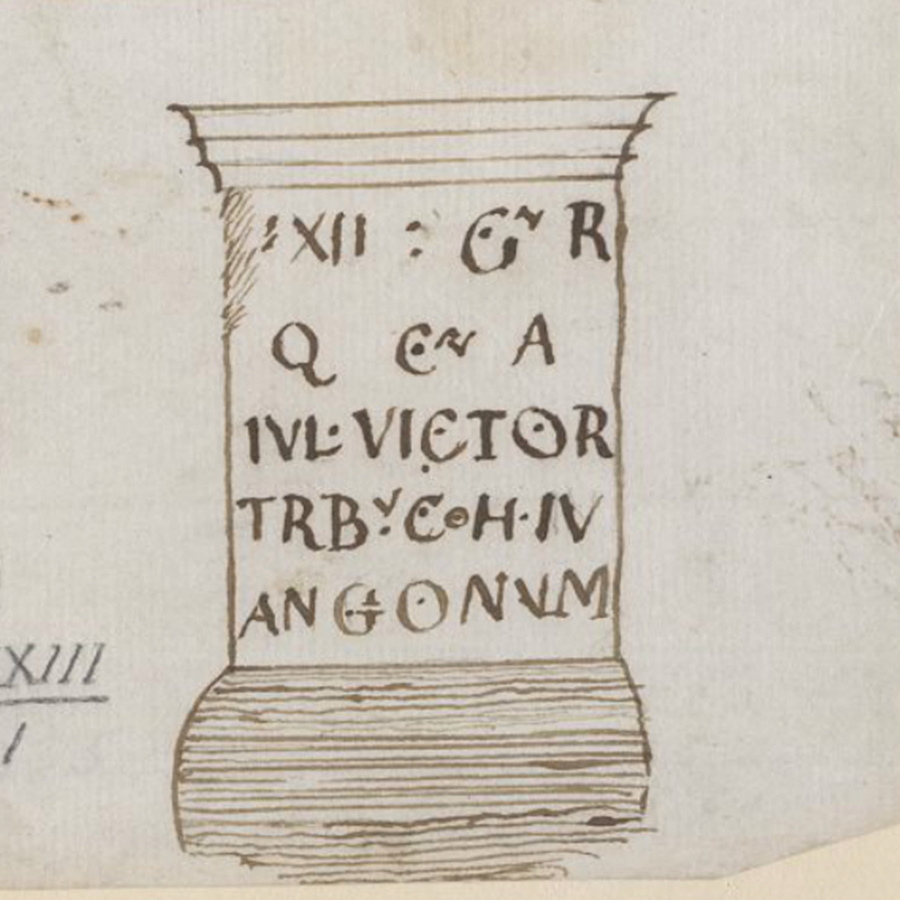 XII : G R
Q C A
IVL·VICTOR
TRB COH·IV
ANGONVM
XIII
1